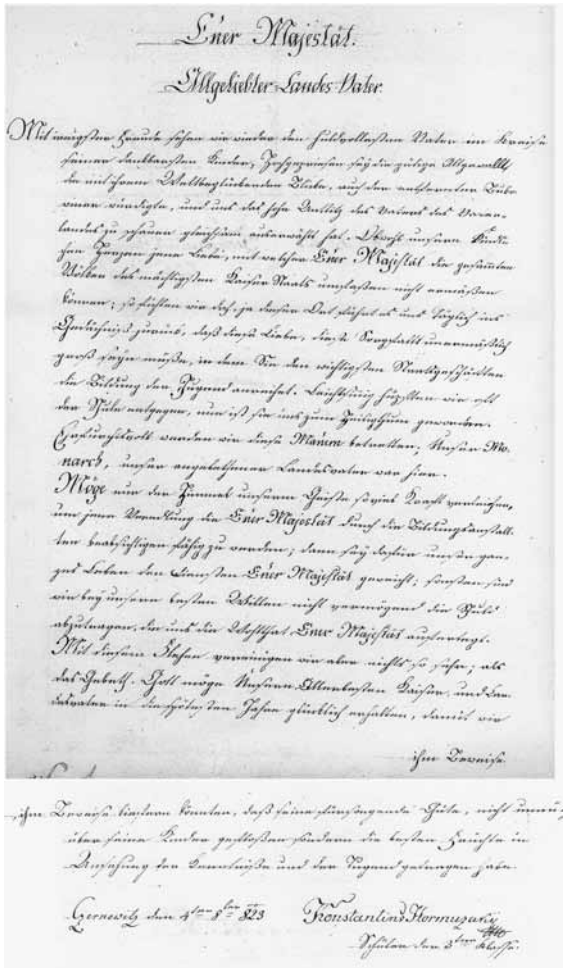 Euer Majestät.
Allgeliebter Landes Vater.
Mit innigster Freude sehen wir wieder den huldvollesten Vater im Kreise
seiner dankbarsten Kinder, Hochgepriesen sey die gütige Allgewallt,
die mit ihrem Weltbeglückenden Blicke, auch der entfernten Buko
winer würdigte, und uns das hohe Antlitz des Vaters des Vater-
landes zu schauen gleichsam auserwählt hat. Obwohl unsere Kindli
chen Herzen jene Liebe, mit welcher Euer Majestät die gesammten
Völker des mächtigsten Kaiser Staats umfassen nicht ermäßen
können; so fühlen wir doch, ja dieser Ort führt es uns täglich ins
Gedächtniß zurück, daß diese Liebe, diese Sorgfallt unermäßlich
groß seyn müße, in dem Sie den wichtigsten Staatsgeschäften
die Bildung der Jugend anreihet. Leichtsinnig hüpften wir oft
der Schule entgegen, nun ist sie uns zum Heiligthum geworden.
Ehrfurchtsvoll werden wir diese Mauern betretten; Unser Mo-
narch, unser angebetheter Landesvater war hier.
Möge nur der Himmel unserm Geiste so viel Kraft verleichen,
um jener Veredlung die Euer Majestät durch die Bildungsanstall-
ten beabsichtigen fähig zu werden; dann sey dafür unser gan-
zes Leben den Diensten Euer Majestät geweiht; sonsten sind
wir bey unserm besten Willen nicht vermögend die Schuld
abzutragen, die uns die Wohlthat Euer Majestät auferlegt.
Mit diesem Flehen vereinigen wir aber nichts so sehr; als
das Gebeth. Gott möge Unsern Allerbesten Kaiser, und Lan
desvater in die spätesten Jahre glücklich erhalten, damit wir
ihm Beweise
ihm Beweise liefern könnten, daß seine fürsorgende Güte, nicht
über seine Kinder gefloßen sondern die besten Früchte in
Ansehung der Kenntniße und der Tugend getragen habe.
Czernowitz den 4ten 8ber 823 Konstantin Hormuzaky
Schüler der 3ten Klasse.